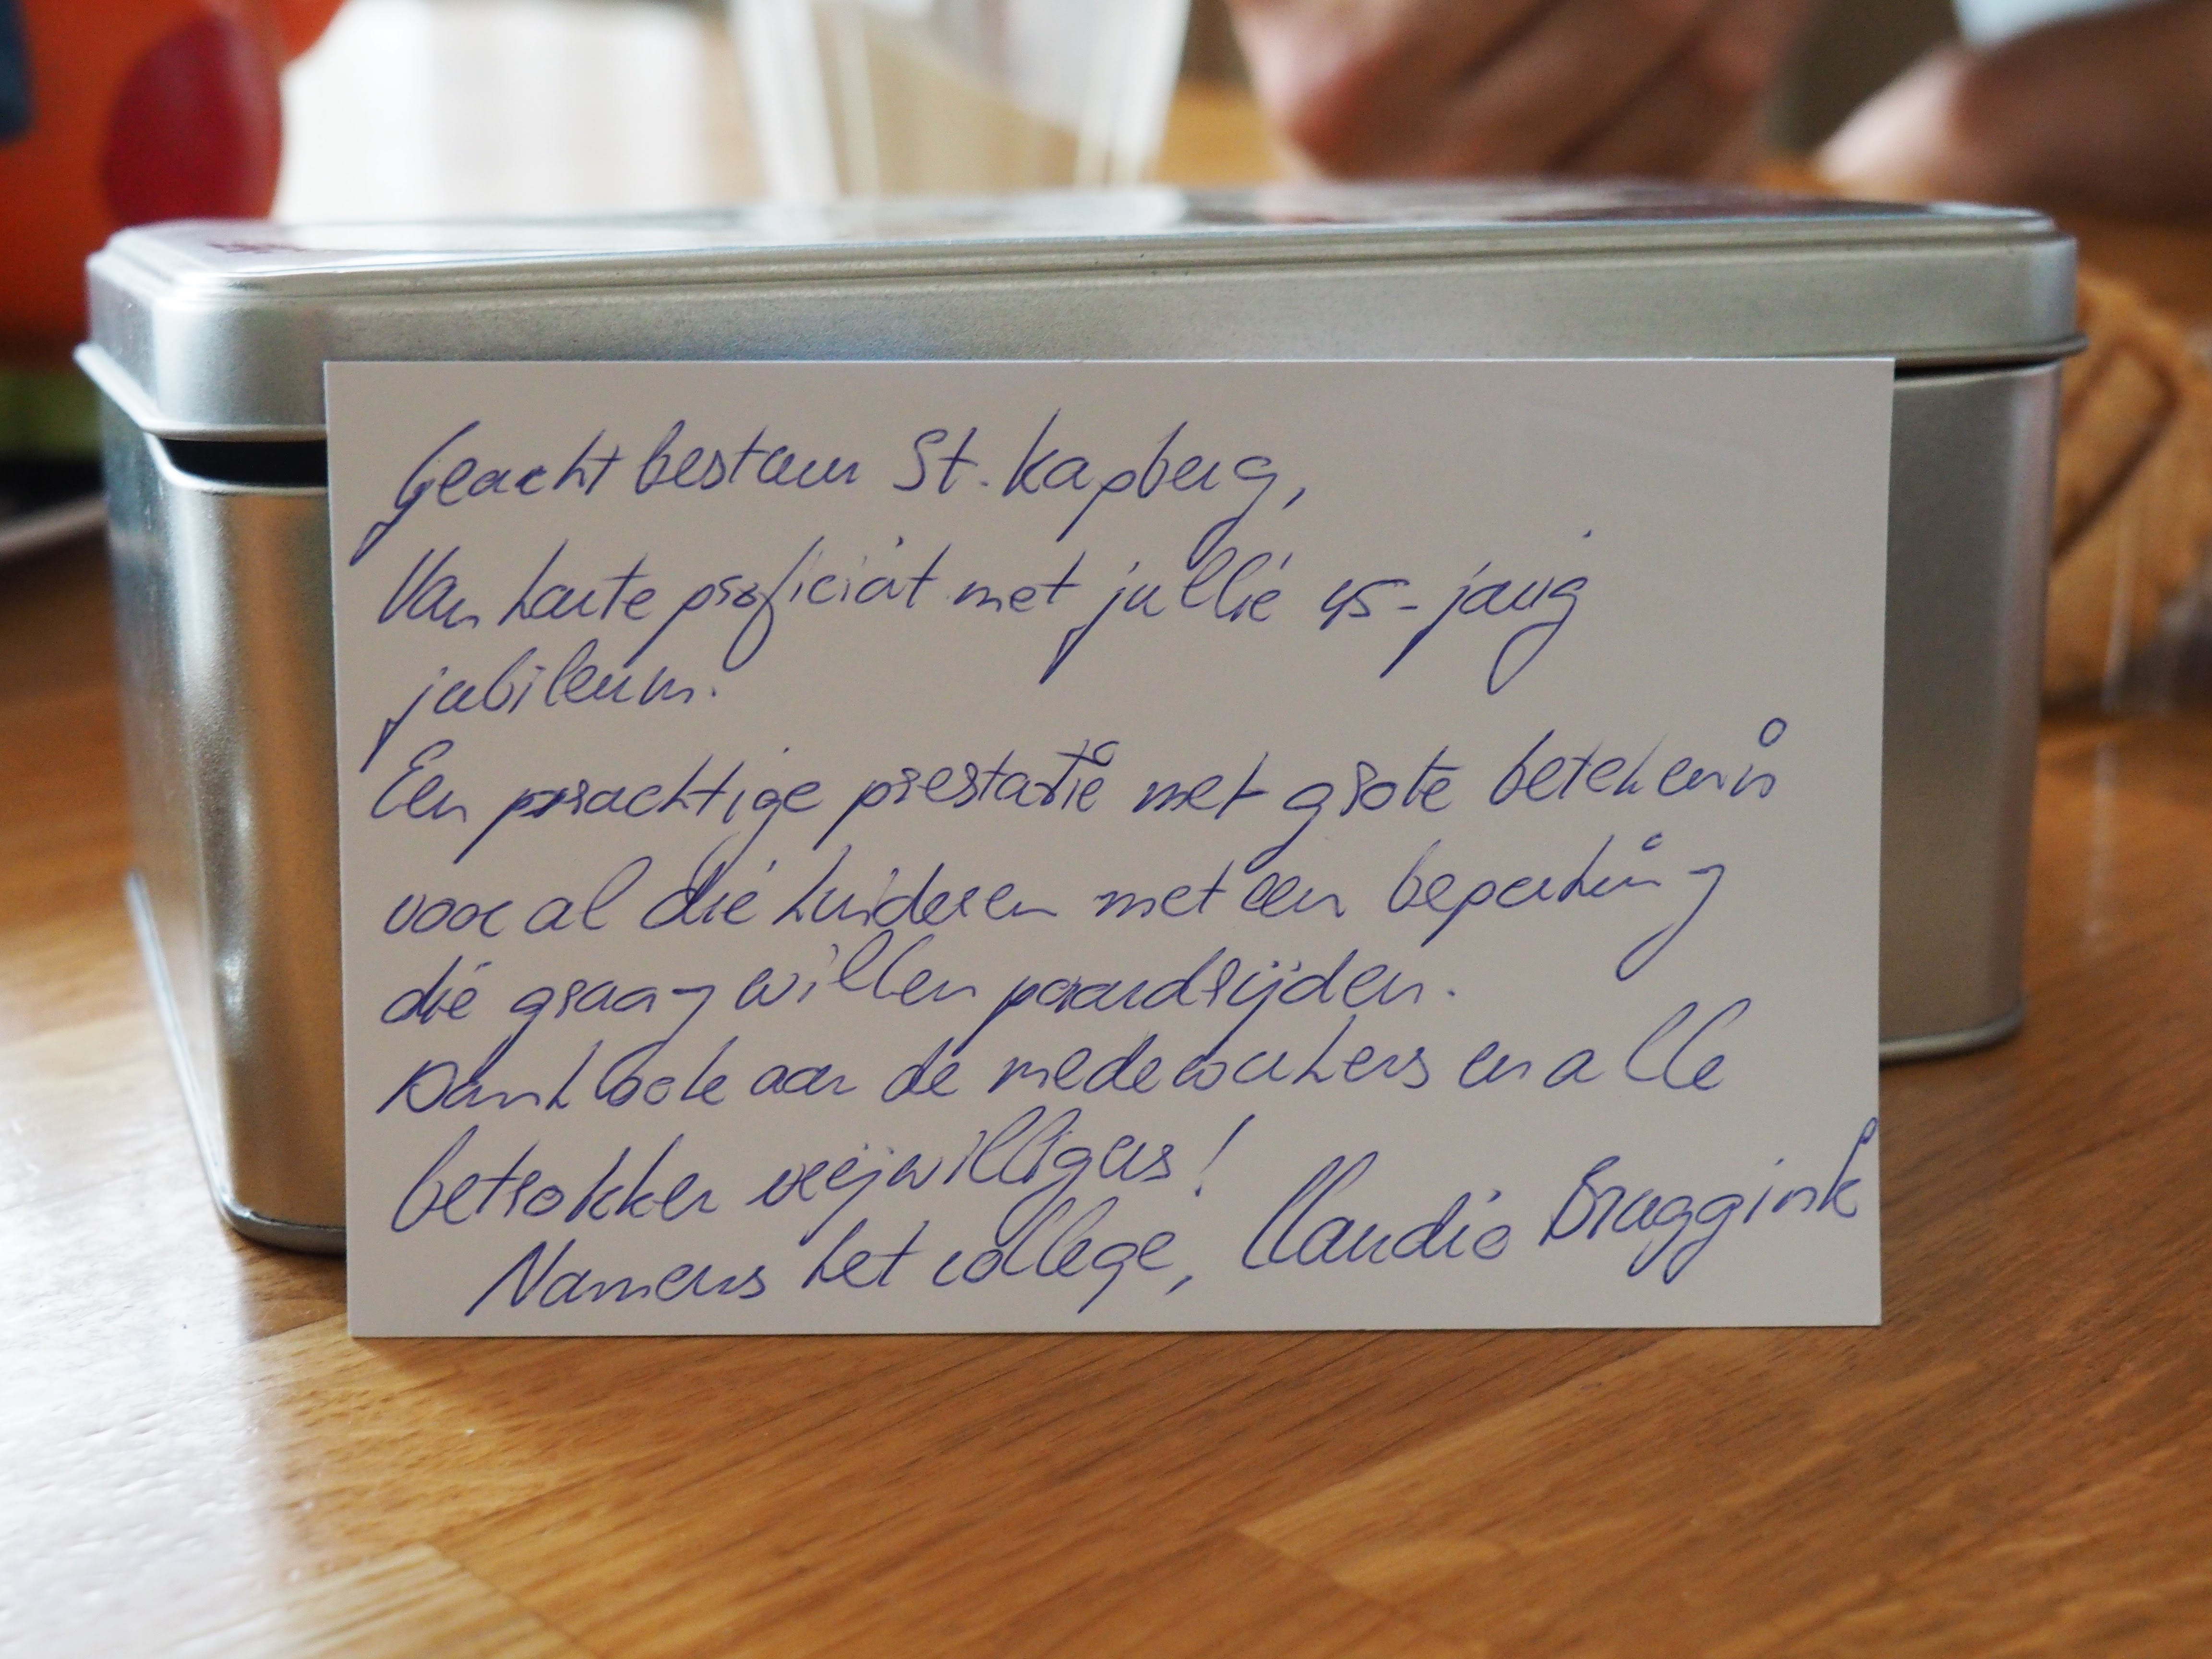 Geacht bestuur St. Kapberg,
Van harte proficiat met jullie 45-jarig
jubileum.
Een prachtige prestatie met grote betekenis
voor al die kinderen met een beperking
die graag willen paardrijden.
Dank ook aan de medewerkers en alle
betrokken vrijwilligers!
Namens het college, Claudio Bruggink